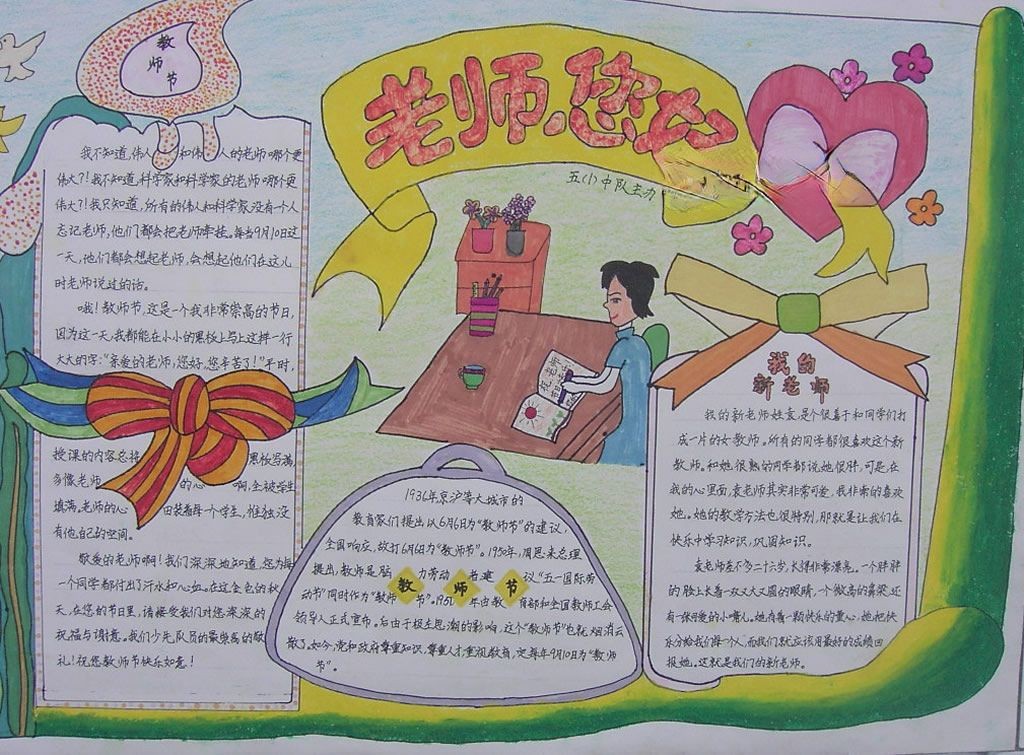 教
师
节
老师,您好
五(1)中队主办
我不知道,伟人和伟人的老师哪个更
伟大?!我不知道,科学家和科学家的老师哪个更
伟大?!我只知道,所有的伟人和科学家没有一个人
忘记老师,他们都会把老师牵挂。每当9月10日这
一天,他们都会想起老师,会想起他们在这儿
时老师说过的话。
哦!教师节,这是一个我非常崇高的节日,
因为这一天,我都能在小小的黑板上写上这样一行
大大的字:“亲爱的老师,您好,您辛苦了!”平时,
授课的内容总将黑板写满,
多像老师的心啊,全被学生
填满。老师的心由装着每个学生,惟独没
有他自己的空间。
敬爱的老师啊!我们深深地知道,您为每
一个同学都付出了汗水和心血。在这金色的秋
天,在您的节日里,请接受我们对您深深的
祝福与谢意。我们少先队员的最崇高的敬
礼!祝您教师节快乐如意!
老师
节日
1936年,京沪等大城市的
教育家们提出以6月6日为“教师节”的建议,
全国响应,故打6月6日为“教师节”。1950年,周恩来总理
提出,教师是脑力劳动者,建议“五一国际劳
动节”同时作为“教师节”。1951年由教育部和全国教师工会
领导人正式宣布。后由于极左思潮的影响,这个“教师节”也就烟消云
散了。如今,党和政府尊重知识,尊重人才,重视教育,定每年9月10日为“教师
节”。
教师节
我的
新老师
我的新老师姓袁,是个很善于和同学们打
成一片的女教师。所有的同学都很喜欢这个新
教师。和她很熟的同学都说她很胖,可是,在
我的心里面,袁老师其实非常可爱,我非常的喜欢
她。她的教学方法也很特别,那就是让我们在
快乐中学习知识,巩固知识。
袁老师差不多二十六岁,长得非常漂亮。一个胖胖
的脸上长着一双又大又圆的眼睛,一个微高的鼻梁,还
有一张可爱的小嘴儿。她有着一颗快乐的童心,她把快
乐分给我们每一个人,而我们就应该用最好的成绩回
报她。这就是我们的新老师。